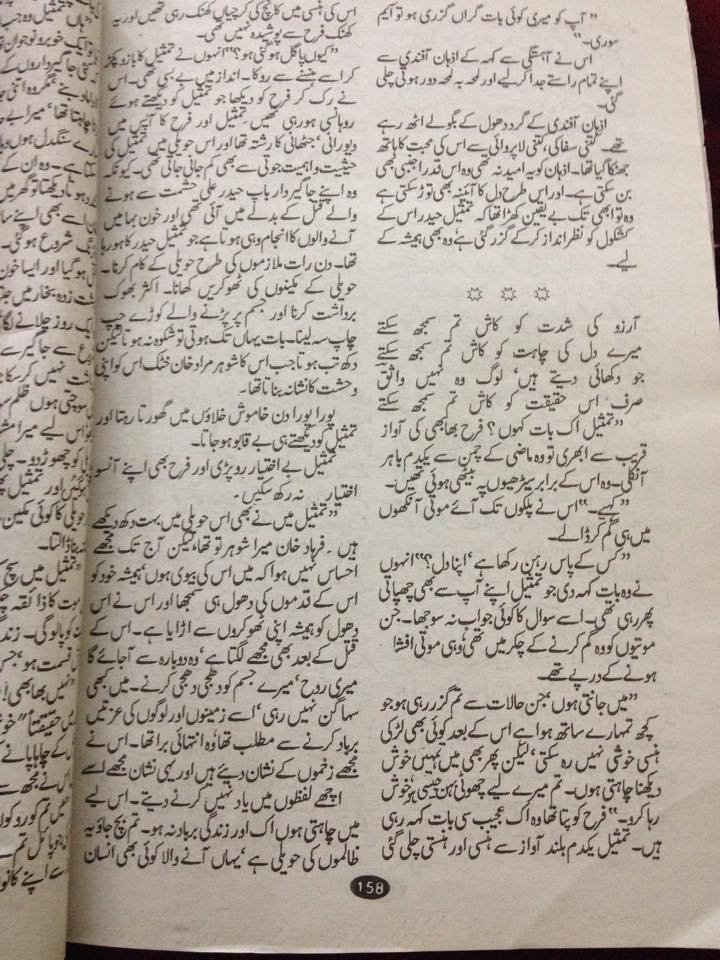 ”آپ کو میری کوئی بات گراں گزری ہو تو آئیم
سوری۔“
اس نے آہستگی سے کہہ کے اذہان آفندی سے
اپنے تمام راستے جدا کر لیے اور لمحہ بہ لمحہ دور ہوتی چلی
گئی۔
اذہان آفندی کے گرد دھول کے بگولے اٹھ رہے
تھے۔ کتنی سفاکی، کتنی لاپروائی سے اس کی محبت کا ہاتھ
جھٹکا گیا تھا۔ اذہان کو یہ امید نہ تھی وہ اس قدر اجنبی بھی
بن سکتی ہے۔ اور اس طرح دل کا آئینہ بھی توڑ سکتی ہے
وہ تو ابھی تک بے یقین کھڑا تھا کہ تمثیل حیدر اس کے
کشکول کو نظر انداز کر کے گزر گئی ہے وہ بھی ہمیشہ کے
لیے۔
آرزو کی شدت کو کاش تم سمجھ سکتے
میرے دل کی چاہت کو کاش تم سمجھ سکتے
جو دکھائی دیتے ہیں‘ لوگ وہ نہیں واثق
صرف اس حقیقت کو کاش تم سمجھ سکتے
”تمثیل اک بات کہوں؟ فرح بھابھی کی آواز
قریب سے ابھری تو وہ ماضی کے چمن سے یکدم باہر
آنکلی۔ وہ اس کے برابر سیڑھیوں پہ بیٹھی ہوئی تھیں۔
”کہیے۔“ اس نے پلکوں تک آئے موتی آنکھوں
میں ہی گم کر ڈالے۔
”کس کے پاس رہن رکھا ہے‘ اپنا دل؟“ انہوں
نے وہ بات کہہ دی جو تمثیل اپنے آپ سے بھی چھپاتی
پھر رہی تھی۔ اسے سوال کا کوئی جواب نہ سوجھا۔ جن
موتیوں کو وہ گم کرنے کے چکر میں تھی‘ وہی موتی افشا
ہونے کے درپے تھے۔
”میں جانتی ہوں‘ جن حالات سے تم گزر رہی ہو جو
کچھ تمہارے ساتھ ہوا ہے اس کے بعد کوئی بھی لڑکی
ہنسی خوشی نہیں رہ سکتی‘ لیکن پھر بھی میں تمہیں خوش
دیکھنا چاہتی ہوں۔ تم میرے لیے چھوٹی بہن جیسی ہو‘ خوش
رہا کرو۔“ فرح کو پتا تھا وہ اک عجیب سی بات کہہ رہی
ہیں۔ تمثیل یکدم بلند آواز سے ہنسی اور ہنستی چلی گئی
اس کی ہنسی میں کانچ کی کرچیاں کھنک رہی تھیں اور یہ
کھنک فرح سے پوشیدہ نہیں تھی۔
”کیوں پاگل ہو گئی ہو؟“ انہوں نے تمثیل کا بازو پکڑ
کر اسے ہنسنے سے روکا۔ انداز میں بے بسی تھی۔ اس
نے رک کر فرح کو دیکھا جو تمثیل کو دیکھتے ہوئے
روہانسی ہو رہی تھیں۔ تمثیل اور فرح کا آپس میں
دیورانی‘ جٹھانی کا رشتہ تھا اور اس حویلی میں تمثیل کی
حیثیت و اہمیت جوتی سے بھی کم جانی جاتی تھی۔ کیونکہ
وہ اپنے جاگیردار باپ حیدر علی حشمت سے ہونے
والے قتل کے بدلے میں آئی تھی اور خون بہا میں
آنے والوں کا انجام وہی ہوتا ہے جو تمثیل حیدر کا ہو رہا
تھا۔ دن رات ملازموں کی طرح حویلی کے کام کرنا۔
حویلی کے مکینوں کی ٹھوکریں کھانا۔ اکثر بھوک
برداشت کرنا اور جسم پر پڑنے والے کوڑے چپ
چاپ سہہ لینا۔ بات یہاں تک ہوتی تو شکوہ نہ ہوتا لیکن
دکھ تب ہوتا جب اس کا شوہر مراد خان خٹک اس کو اپنی
وحشت کا نشانہ بناتا تھا۔
پورا پورا دن خاموش خلاؤں میں گھورتا رہتا اور
تمثیل کو دیکھتے ہی بے قابو ہو جاتا۔
تمثیل بے اختیار رو پڑی اور فرح بھی اپنے آنسو
اختیار نہ رکھ سکیں۔
”تمثیل میں نے بھی اس حویلی میں بہت دکھ دیکھے
ہیں۔ فرہاد خان میرا شوہر تو تھا‘ لیکن آج تک مجھے
احساس نہیں ہوا کہ میں اس کی بیوی ہوں‘ ہمیشہ خود کو
اس کے قدموں کی دھول ہی سمجھا اور اس نے اس
دھول کو ہمیشہ اپنی ٹھوکروں سے اڑایا ہے۔ اس کے
قتل کے بعد بھی مجھے لگتا ہے‘ وہ دوبارہ سے آجائے گا
میری روح‘ میرے جسم کو دھجی دھجی کرنے۔ میں بھی
سہاگن نہیں رہی‘ اسے زمینوں اور لوگوں کی عزتیں
برباد کرنے سے مطلب تھا‘ وہ انتہائی برا تھا۔ اس نے
مجھے زخموں کے نشان دیے ہیں اور یہی نشان مجھے اسے
اچھے لفظوں میں یاد نہیں کرنے دیتے۔ اس لیے
میں چاہتی ہوں اک اور زندگی برباد نہ ہو۔ تم بچ جاؤ یہ
ظالموں کی حویلی ہے‘ یہاں آنے والا کوئی بھی انسان
158